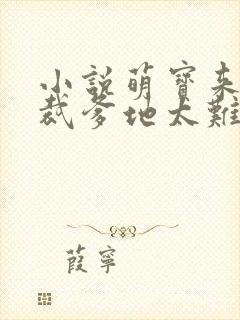 小說萌寶来
裁爹地太難
葭寧